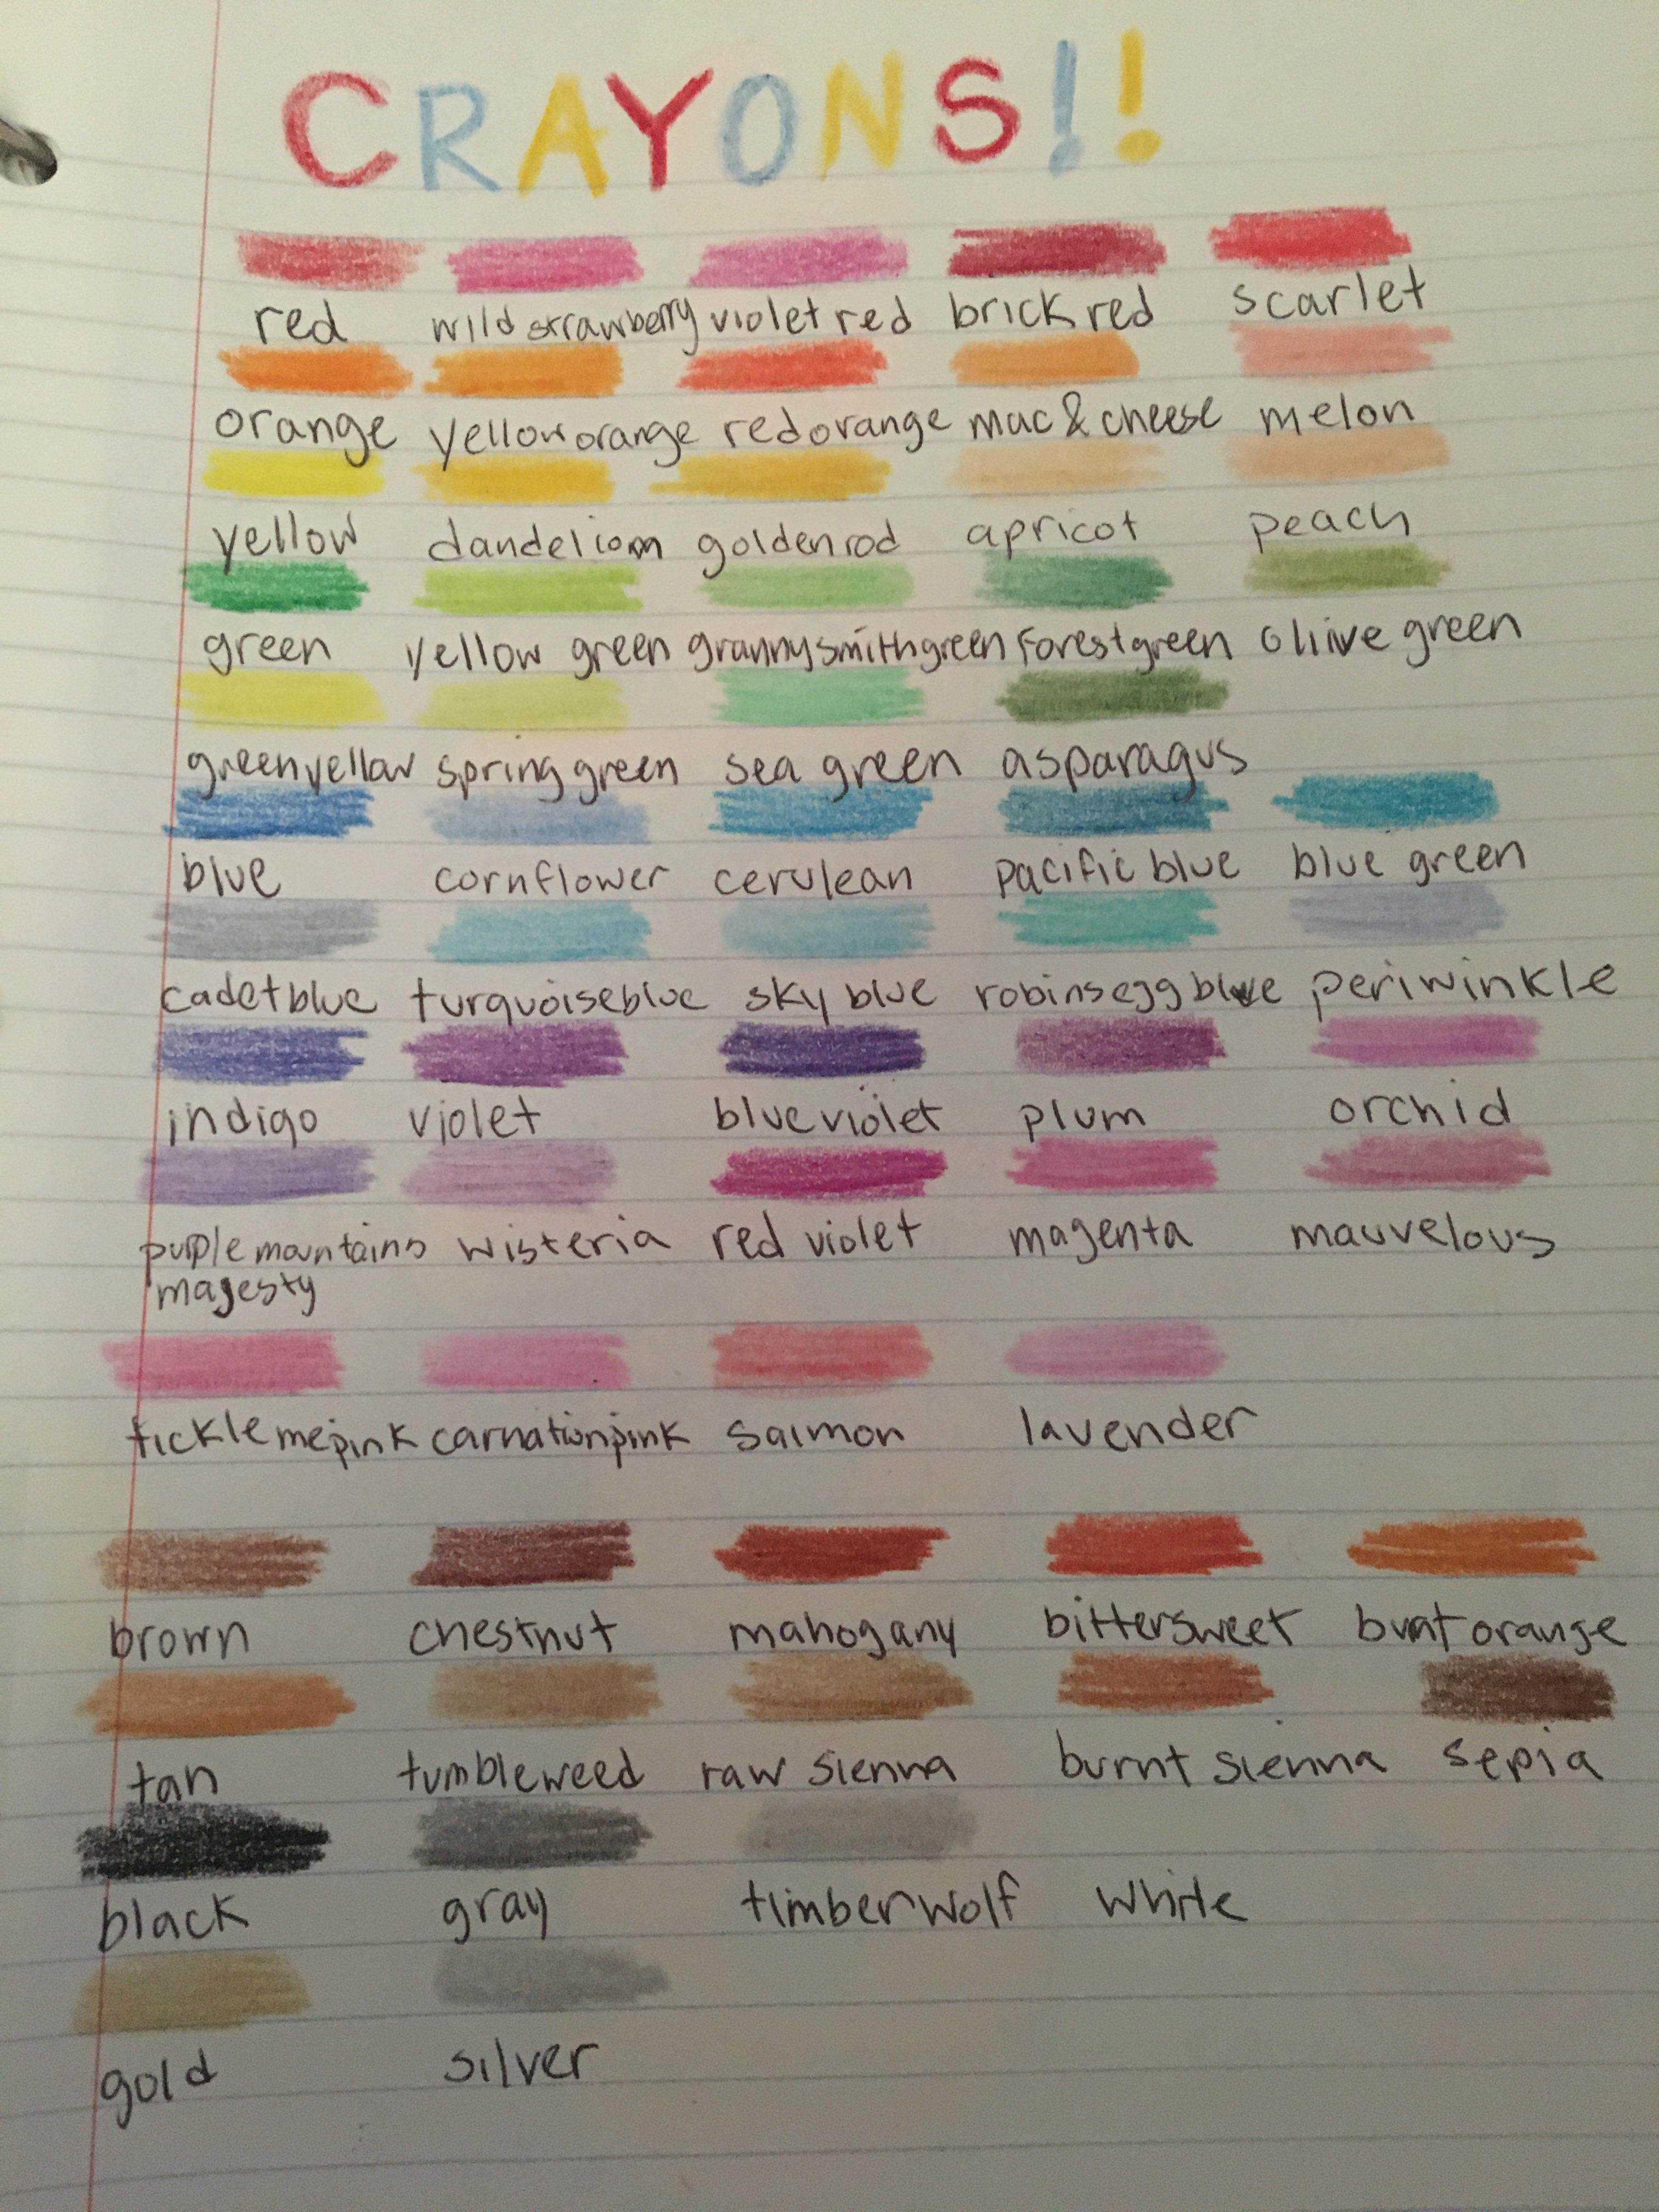 CRAYONS!!
red wild strawberry violet red brick red scarlet
orange yellow orange red orange mac & cheese melon
yellow dandelion goldenrod apricot peach
green yellow green granny smith green forest green olive green
green yellow spring green sea green asparagus
blue cornflower cerulean pacific blue blue green
cadet blue turquoise blue sky blue robins egg blue periwinkle
indigo violet blue violet plum orchid
purple mountains wisteria red violet magenta mauvelous
magesty
tickle me pink carnation pink salmon lavender
brown chestnut mahogany bittersweet burnt orange
tan tumbleweed raw sienna burnt sienna sepia
black gray timberwolf white
gold silver